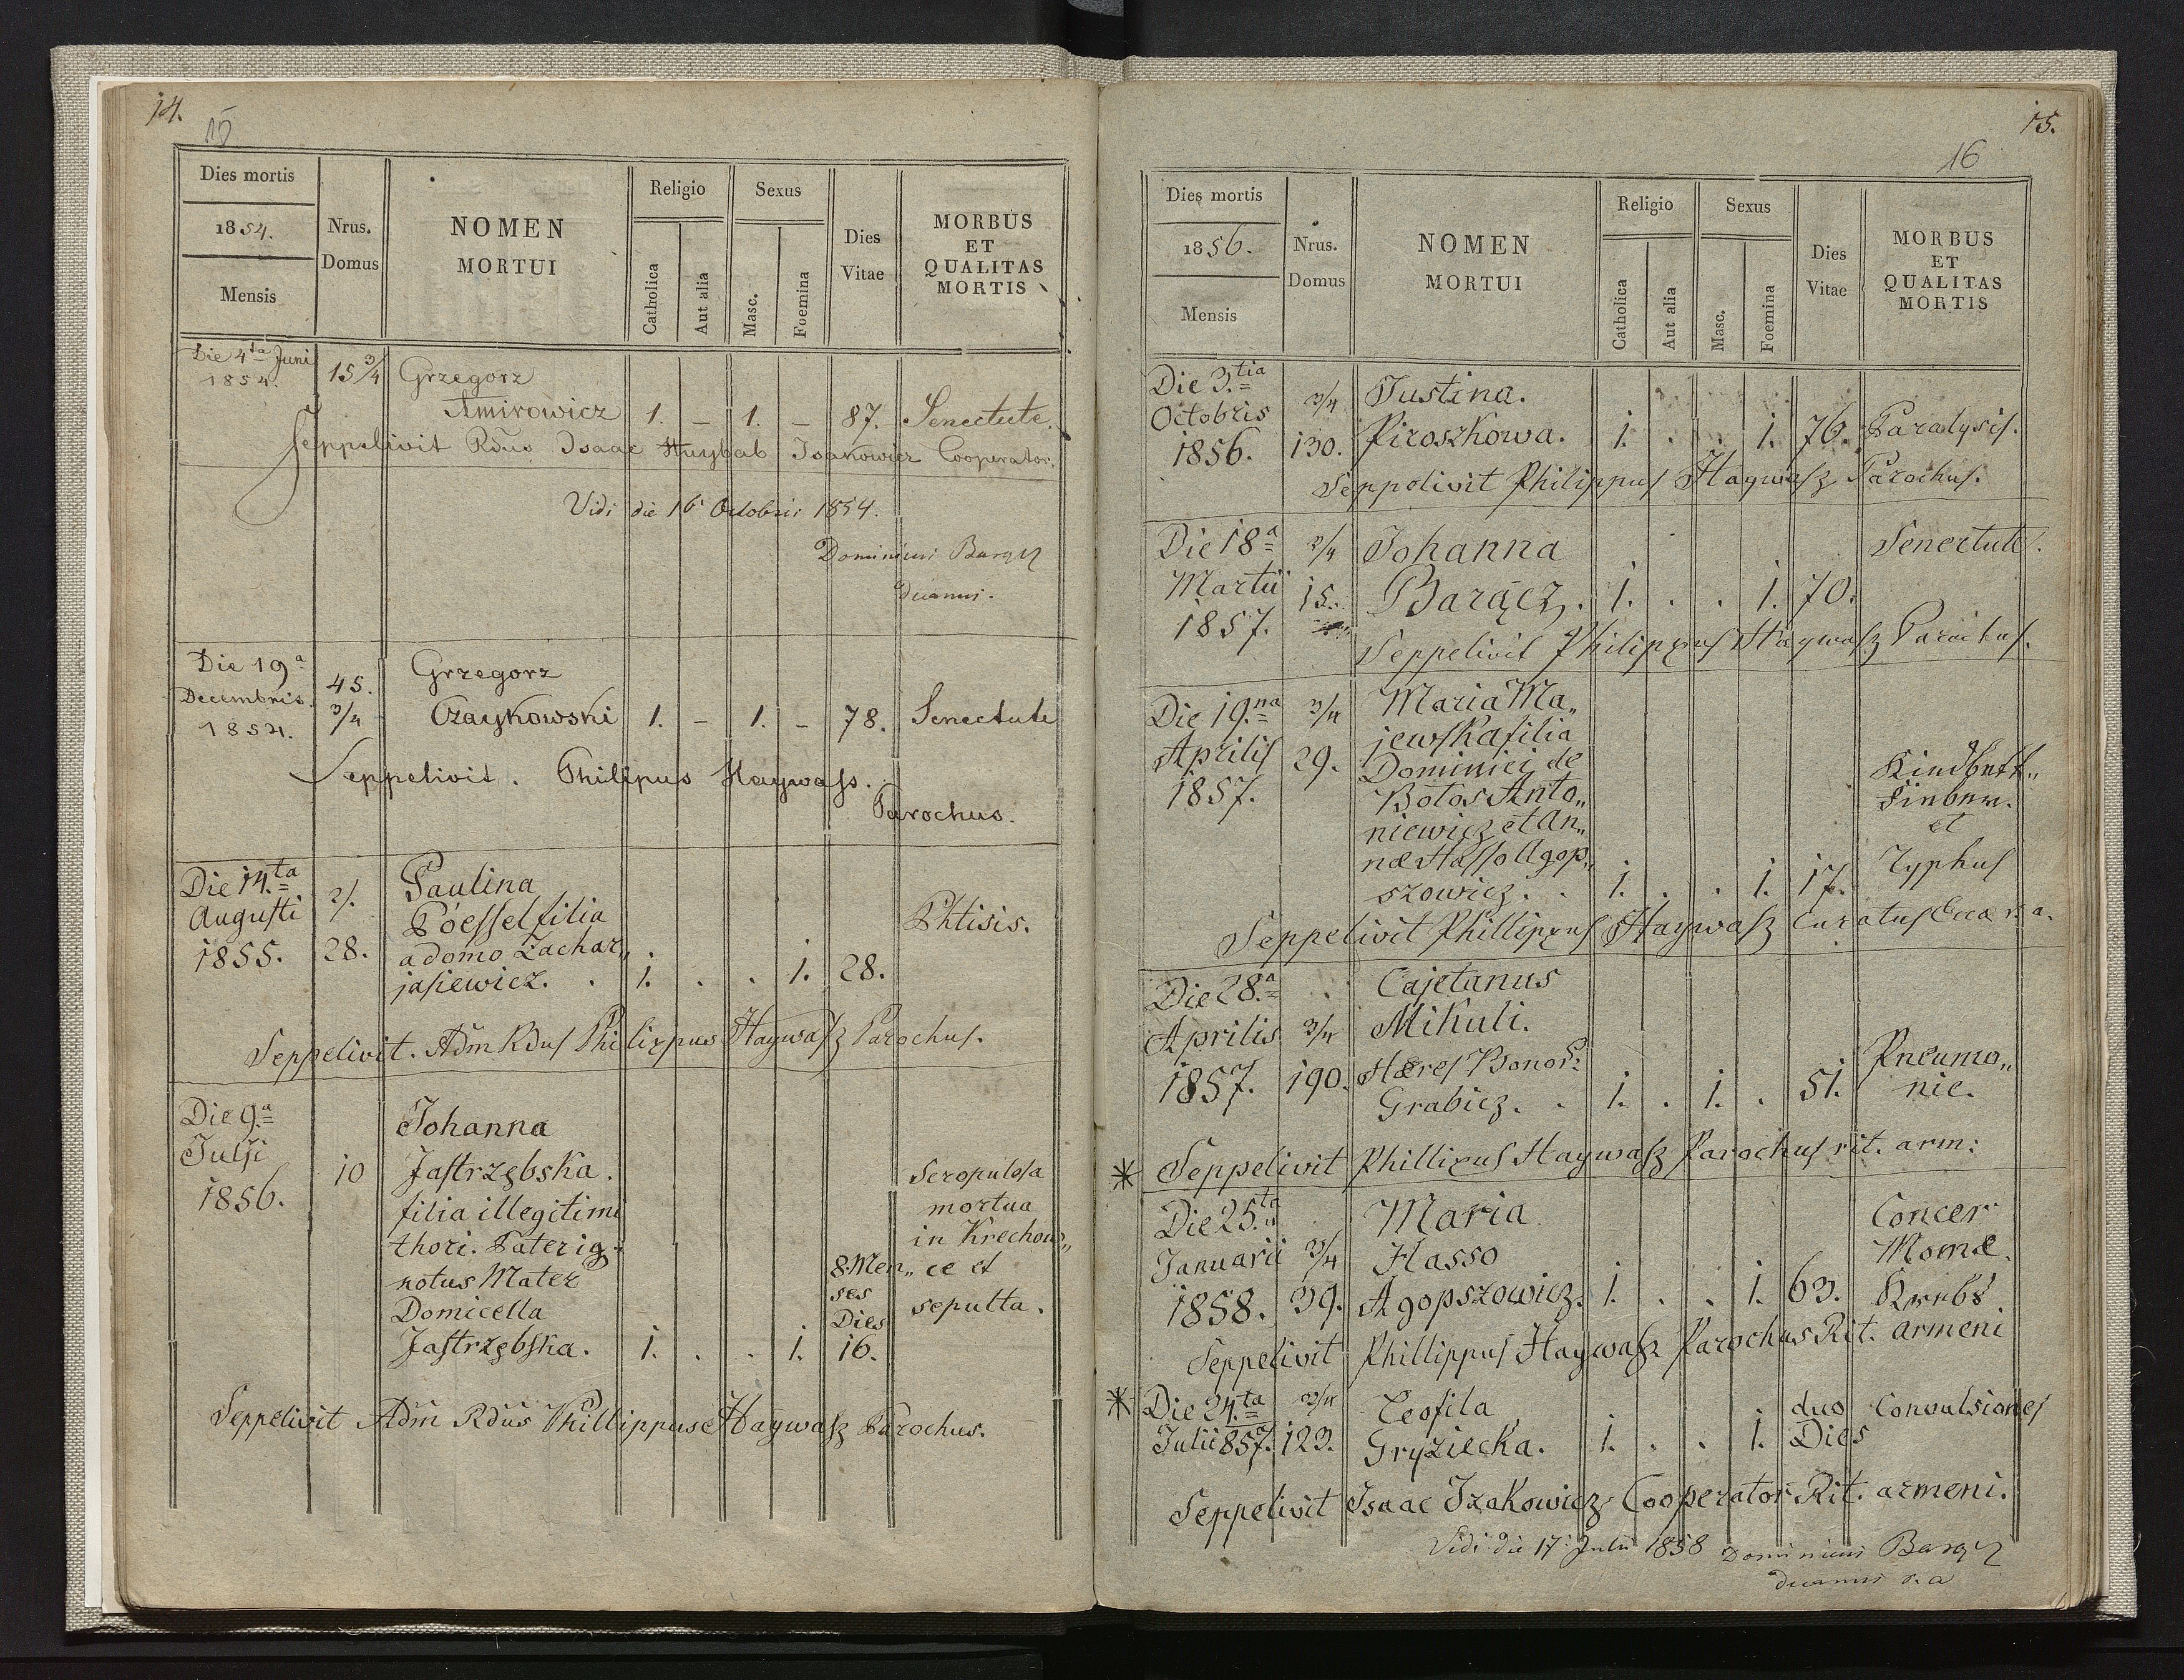 14.
15
Dies mortis
1854.
Mensis
Nrus.
Domus
NOMEN
MORTUI
Religio
Catholica
Aut alia
Sexus
Masc.
Foemina
Dies
Vitae
MORBUS
ET
QUALITAS
MORTIS
Die 4ta Juni
1854.
15 3/4
Grzegorz
Amirowicz 1. – 1. – 87. Senectute.
Seppelivit Rdus Isaac Isakowicz Cooperator.
Vidi die 16 Octobris 1854.
Dominicus Barącz
Decanus.
Die 19a
Decembris.
1854.
45.
3/4
Grzegorz
Czaykowski 1. – 1. – 78. Senectute
Seppelivit. Philipus Haywass.
Parochus.
Die 14.ta
Augusti
1855.
28.
Paulina
Poessel filia
a domo Zachar„
jasiewicz. . 1. . . 1. 28.
Phtisis.
Seppelivit. Adm Rdus Philippus Haywasz Parochus.
Die 9.a
Julji
1856.
10
Johanna
Jastrzębska.
filia illegitimi
thori. Pater ig„
notus Mater
Domicella
Jastrzębska. 1. . . 1.
8 Men„
ses
Dies
16.
Scropulosa
mortua
in Krechow„
ce et
sepulta.
Seppelivit Adm Rdus Phillippus Haywasz Parochus.
15.
16
Dies mortis
1856.
Mensis
Nrus.
Domus
NOMEN
MORTUI
Religio
Catholica
Aut alia
Sexus
Masc.
Foemina
Dies
Vitae
MORBUS
ET
QUALITAS
MORTIS
Die 3.tia
Octobris
1856.
3/4
130.
Justina.
Piroszkowa. 1. . . 1. 76. Paralysis.
Seppelivit Philippus Haywasz Parochus.
Die 18a
Martii
1857.
2/4
15.
Johanna
Barącz. 1. . . 1. 70.
Senectute.
Seppelivit Philippus Haywasz Parochus.
Die 19.na
Aprilis
1857.
3/4
29.
Maria Ma„
jewska filia
Dominici de
Botos Anto„
niewicz et An„
næ Hasso Agop„
szowicz. . 1. . . 1. 17.
Kindbett„
Fieber.
et
Typhus
Seppelivit Phillippus Haywasz Curatus
Die 28.a
Aprilis
1857.
3/4
190.
Cajetanus
Mikuli.
Hæres Bonor:
Grabicz. . 1. . 1. . 51.
Pneumo„
nie.
* Seppelivit Phillipus Haywasz Parochus rit. arm:
Die 25.ta
Januarii
1858.
3/4
39.
Maria
Hasso
Agopszowicz. 1. . . 1. 63.
Concer
Mamæ.
Krebs.
Seppelivit Phillippus Haywasz Parochus Rit. armeni
* Die 24.ta
Julii 857.
3/4
123.
Teofila
Gryziecka. 1. . . 1.
duo
Dies
Convulsiones
Seppelivit Isaac Izakowicz Cooperator Rit. armeni.
Vidi die 17 Julii 1858 Dominicus Barącz
Decanus r. a